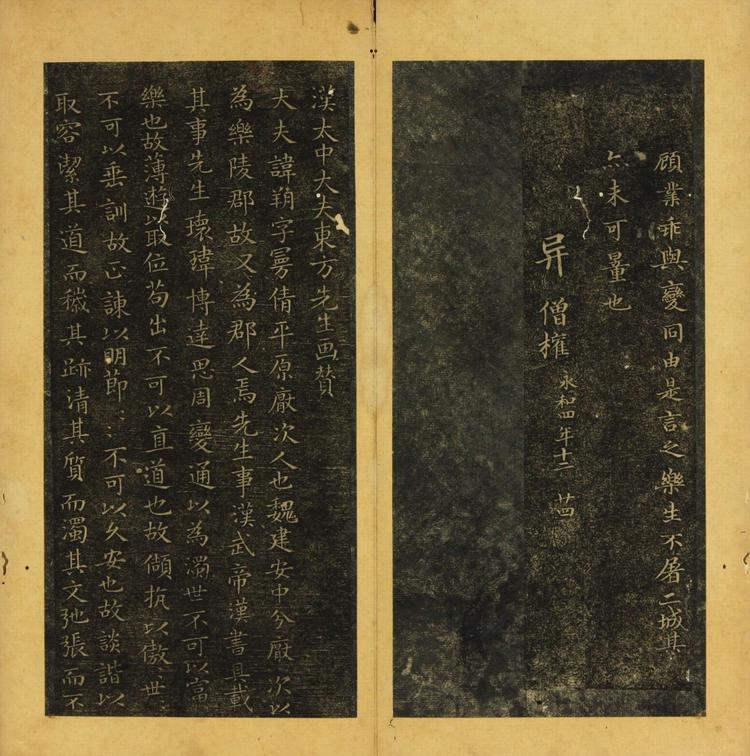 顧業乖與變同由是言之樂生不屠二城其
亦未可量也
异 僧權 永和四年十二
漢太中大夫東方先生画贊
大夫諱朔字曼倩平原厭次人也魏建安中分厭次以
為樂陵郡故又為郡人焉先生事漢武帝漢書具載
其事先生瓌瑋博達思周變通以為濁世不可以富
樂也故薄遊以取位苟出不可以直道也故傾抗以傲世〻
不可以垂訓故正諫以明節〻不可以久安也故談諧以
取容潔其道而穢其跡清其質而濁其文弛張而不